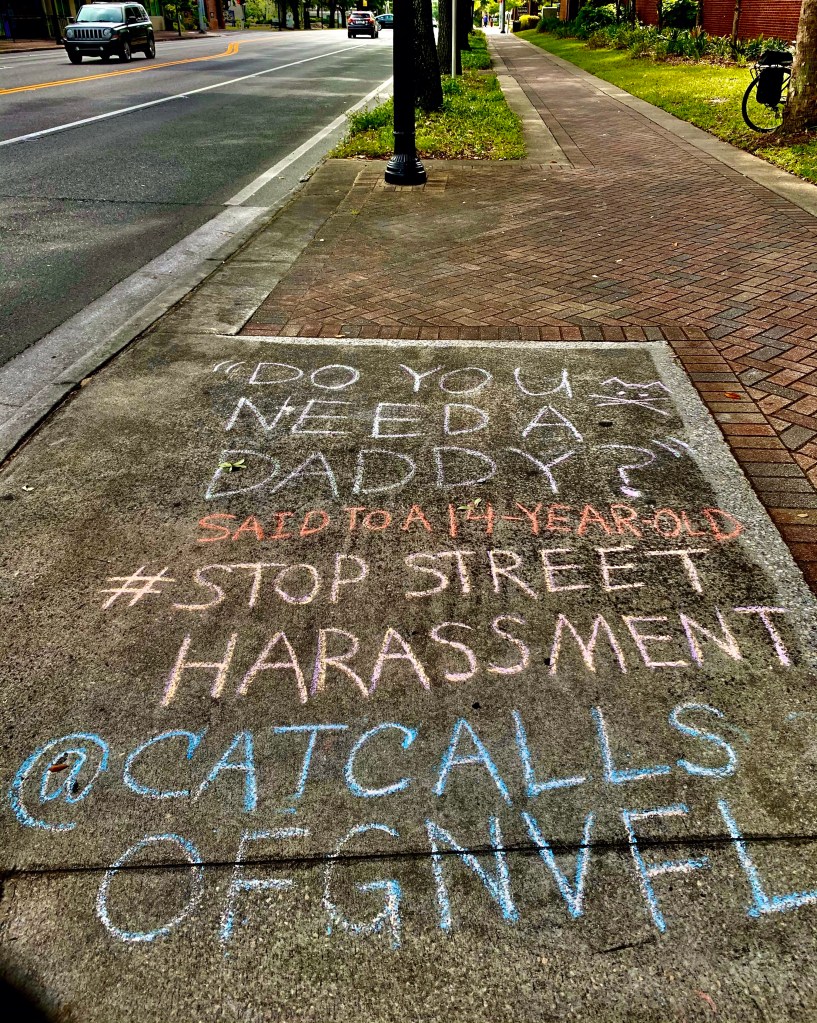 "DO YOU
NEED A
DADDY?"
SAID TO A 14-YEAR-OLD
#STOP STREET
HARASSMENT
@CATCALLS
OFGNVFL